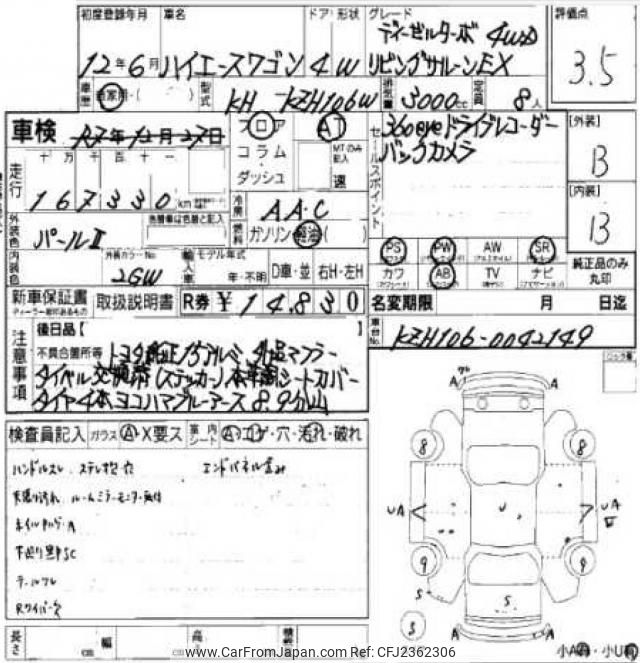 初度登録年月 車名 ドア 形状 グレード 評価点
12年6月 ハイエースワゴン 4 W ディーゼルターボ 4WD
リビングサルーンEX
3.5
車歴 自家用・( ) 型式 KH-KZH106W 排気量 3000cc 定員 8人
車検 R7年12月27日
フロア AT
コラム MTのみ記入
ダッシュ 速
セールスポイント 360eyeドライブレコーダー
バックカメラ
[外装]
B
[内装]
B
走行 十万千百十一
167330km
冷房 AAC
燃料 ガソリン・軽油( )
外装色 パールII 色替車は色替色と記入
外装カラーNo
2GW
内装色
輸入車 モデル年式
年・不明 D車・並 右H・左H
PS PW AW SR
カワ AB TV ナビ
純正品のみ丸印
新車保証書 取扱説明書 R券 ¥14,830
ディーラー発印あるもの
名変期限 月 日迄
車台No. KZH106-0042149
注意事項
後日品【
不具合箇所等 トヨタ純正15アルミ 外品マフラー
タイベル交換済(ステッカー) 本革調シートカバー
タイヤ4本ヨコハマブルーアース8.9分山
ロック番号
検査員記入 ガラス A・X要ス 内装シート A・コゲ・穴・汚れ・破れ
ハンドルスレ エンドパネル歪み
ルームミラーモニター
ホイールキズ・A
下廻り サSC
テールワレ
Rワイパー欠
A A
8 8
UA U UA
9 9
S S
S
A A
長さ cm 幅 cm 高 cm
小A 小U
www.CarFromJapan.com Ref: CFJ2362306